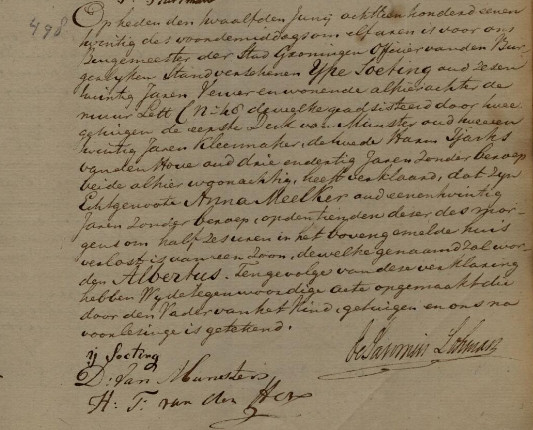 498
Op heden den twaalfden Junij achttienhonderd eenen
twintig des voordemiddags om elf uren is voor ons
Burgemeester der Stad Groningen Officier van den Bur-
gerlyken Stand verschenen Ype Soeting oud zesen
twintig Jaren Verver en wonende alhier achter de
muur Lett C No 48 dewelke geadsisteerd door twee
getuigen de eerste Derk van Munster oud twee en
twintig Jaren Kleermaker, de tweede Harm Tjarks
van den Hove oud drie en dertig Jaren zonder beroep
beide alhier woonachtig, heeft verklaard, dat zyn
Echtgenoote Anna Meelker oud eenentwintig
Jaren zonder beroep, op den tienden dezer des mor-
gens om half zes uren in het bovengemelde huis
verlost is van een Zoon, dewelke genaamd zal wor-
den Albertus. Tengevolge van deze verklaring
hebben Wy de tegenwoordige acte opgemaakt die
door den Vader van het Kind, getuigen en ons na
voorlezinge is getekend.
ij Soeting
D: Van Munster
H: T: van den Hove
de Savornin Lohman